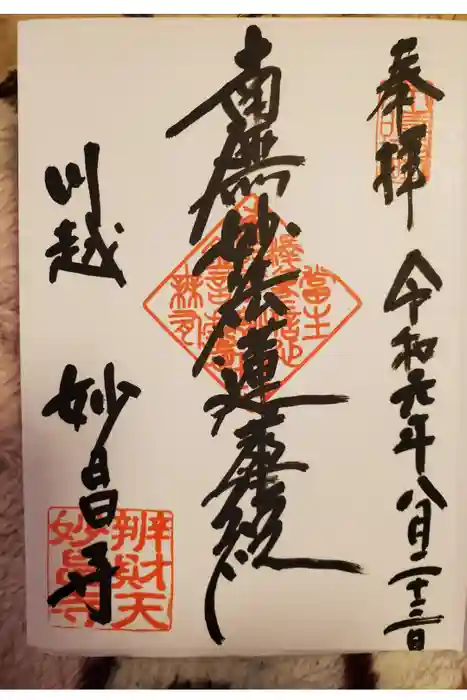 奉拝
令和六年八月二十三日
南無妙法蓮華経
川越
妙昌寺
辨財天
妙昌寺